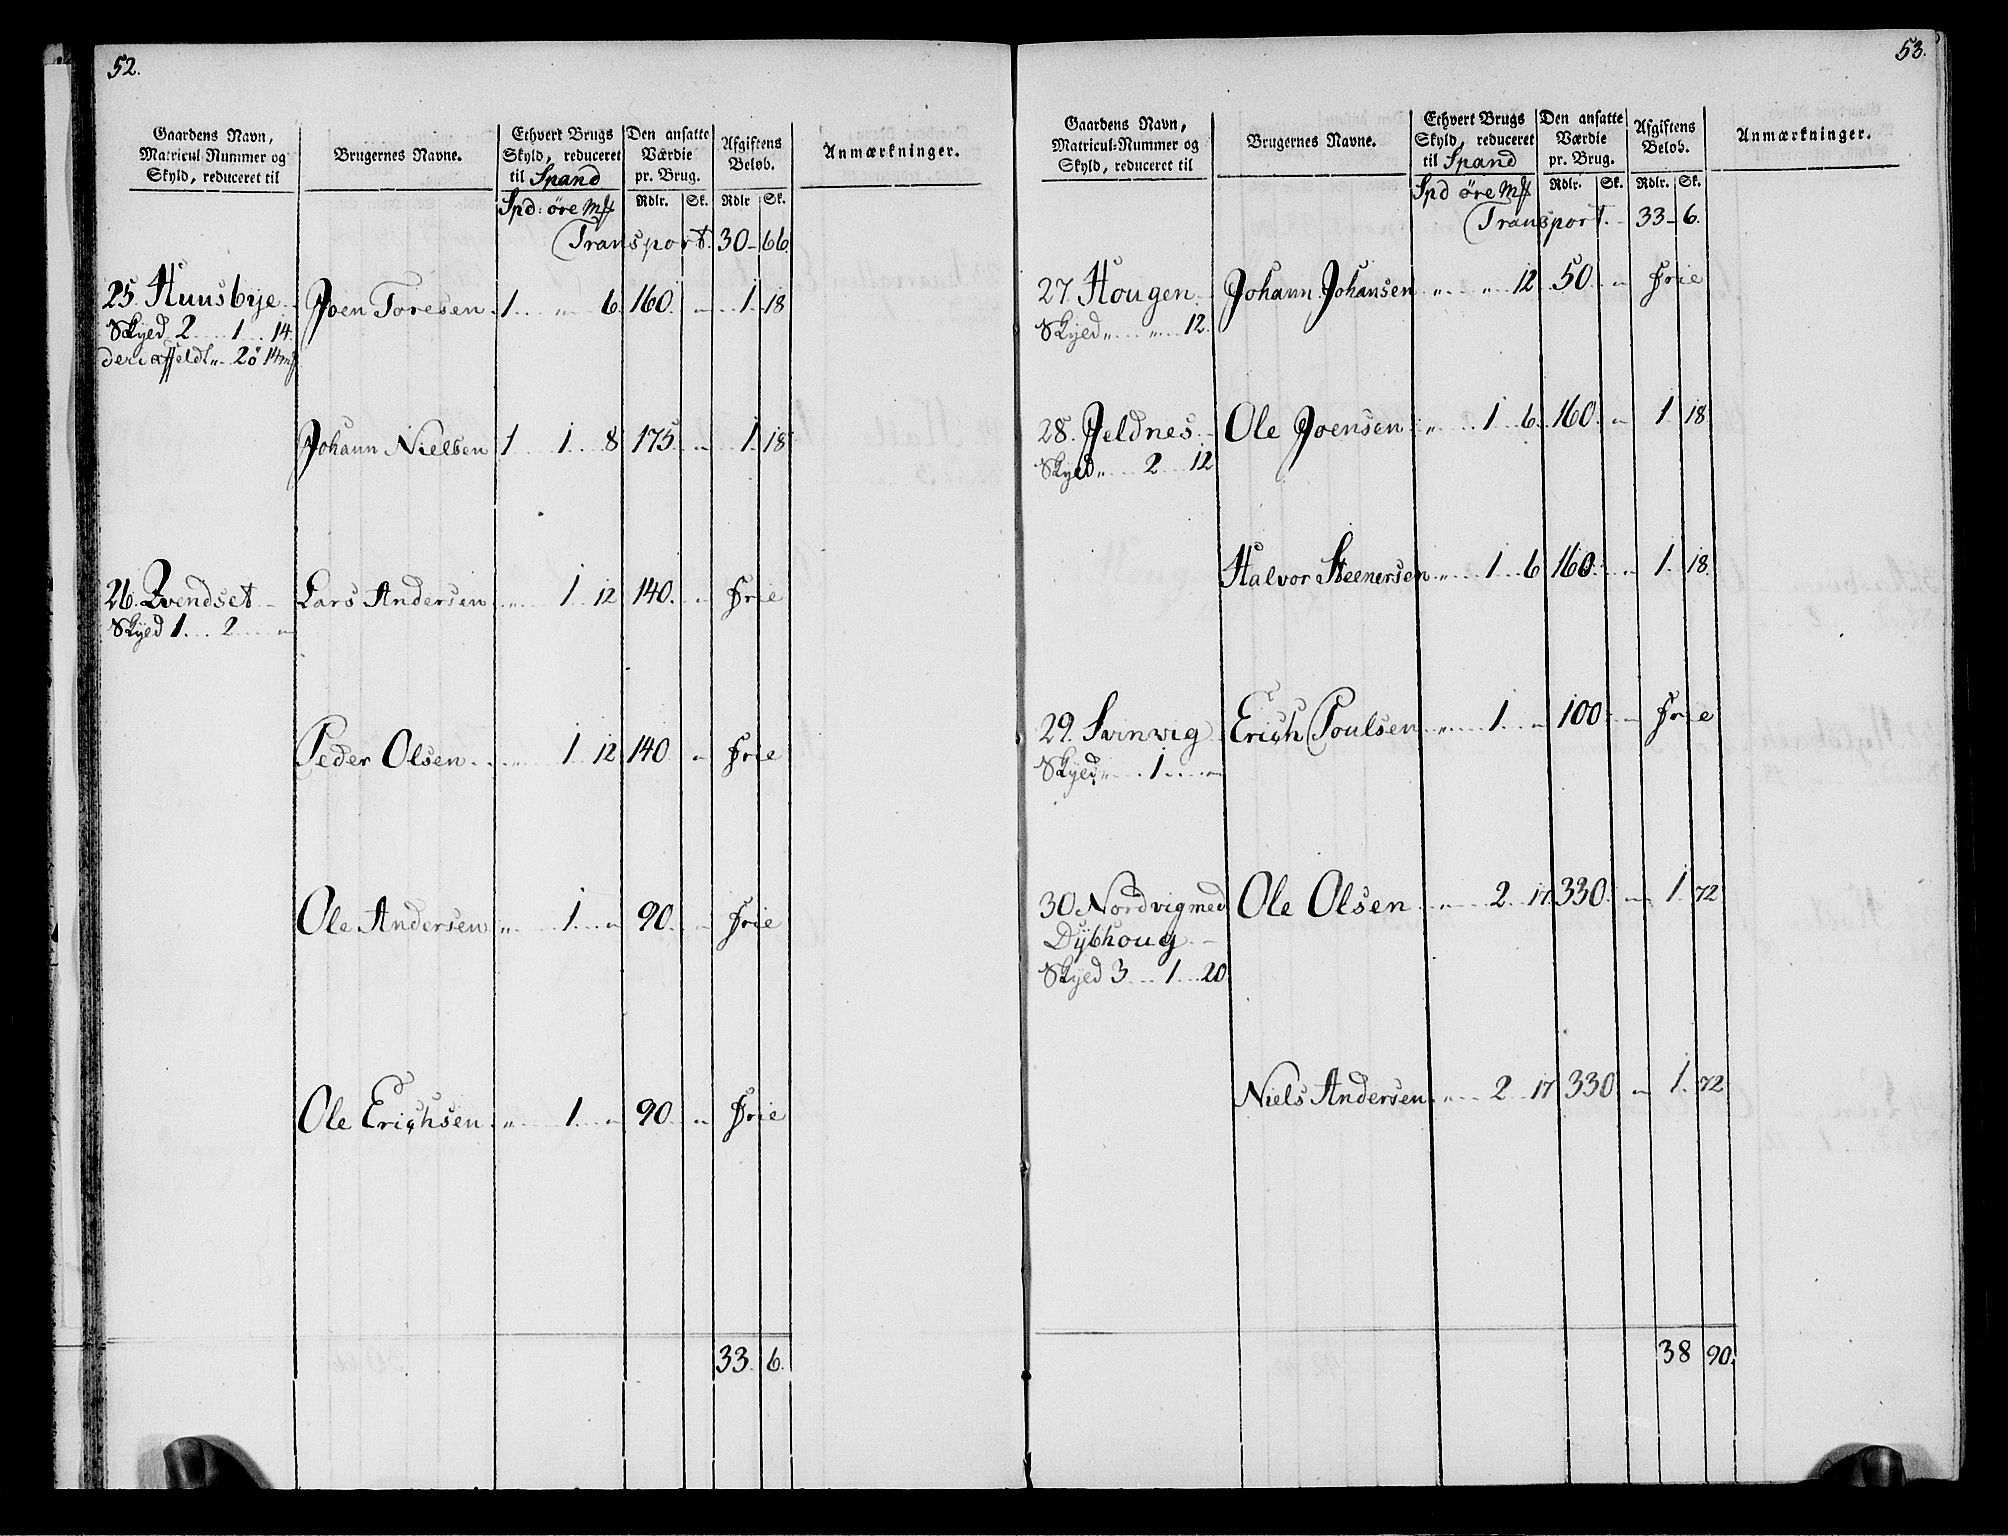 52.
Gaardens Navn, Matricul-Nummer og Skyld, reduceret til
Brugernes Navne.
Ethvert Brugs Skyld, reduceret til Spand
Den ansatte Værdie pr. Brug.
Afgiftens Beløb.
Anmærkninger.
Spd: øre Mk Rdlr. Sk. Rdlr Sk.
Transport. 30 - 66.
25. Huusbye Joen Toresen. 1 " 6. 160. " 1. 18
Skyed 2 1 14.
deri affeldt " 2ø 14mk
Johann Nielsen 1 1 8 175 " 1. 18
26. Qvendset Lars Andersen " 1 12 140. " frie
Skyed 1 2 "
Peder Olsen " 1 12 140 " frie
Ole Andersen " 1 " 90. " frie
Ole Erichsen " 1 " 90. " frie
33. 6.
53.
Gaardens Navn, Matricul-Nummer og Skyld, reduceret til
Brugernes Navne.
Ethvert Brugs Skyld, reduceret til Spand
Den ansatte Værdie pr. Brug.
Afgiftens Beløb.
Anmærkninger.
Spd øre Mk Rdlr. Sk. Rdlr. Sk.
Transport. 33 - 6.
27. Hougen. Johann Johansen " " 12 50. " frie
Skyed " " 12.
28. Jeldnes. Ole Joensen " 1 6. 160. " 1 18
Skyed " 2 12
Halvor Steenersen " 1 6 160. " 1. 18.
29. Svinvig Erich Poulsen " 1 " 100. " frie
Skyed " 1 "
30 Nordvig med Ole Olsen " 2 17 330. " 1. 72
Dybhoug
Skyed 3 1 20
Niels Andersen " 2 17 330 " 1. 72
38 90.